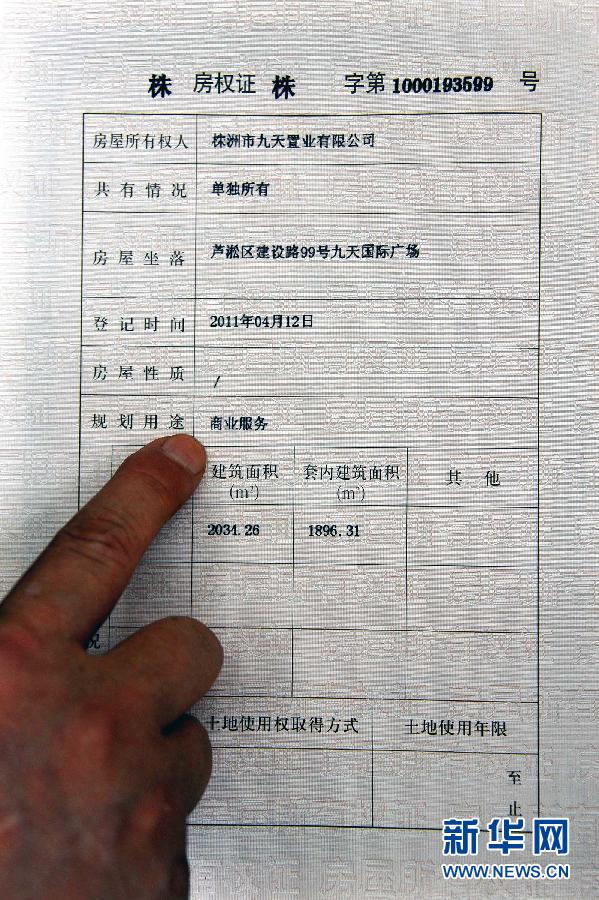 株 房权证 株 字第 1000193599 号
房屋所有权人 株洲市九天置业有限公司
共有情况 单独所有
房屋坐落 芦淞区建设路99号九天国际广场
登记时间 2011年04月12日
房屋性质 /
规划用途 商业服务
建筑面积 套内建筑面积 其他
(㎡) (㎡)
2034.26 1896.31
况
土地使用权取得方式 土地使用年限
至
止
新华网
WWW.NEWS.CN